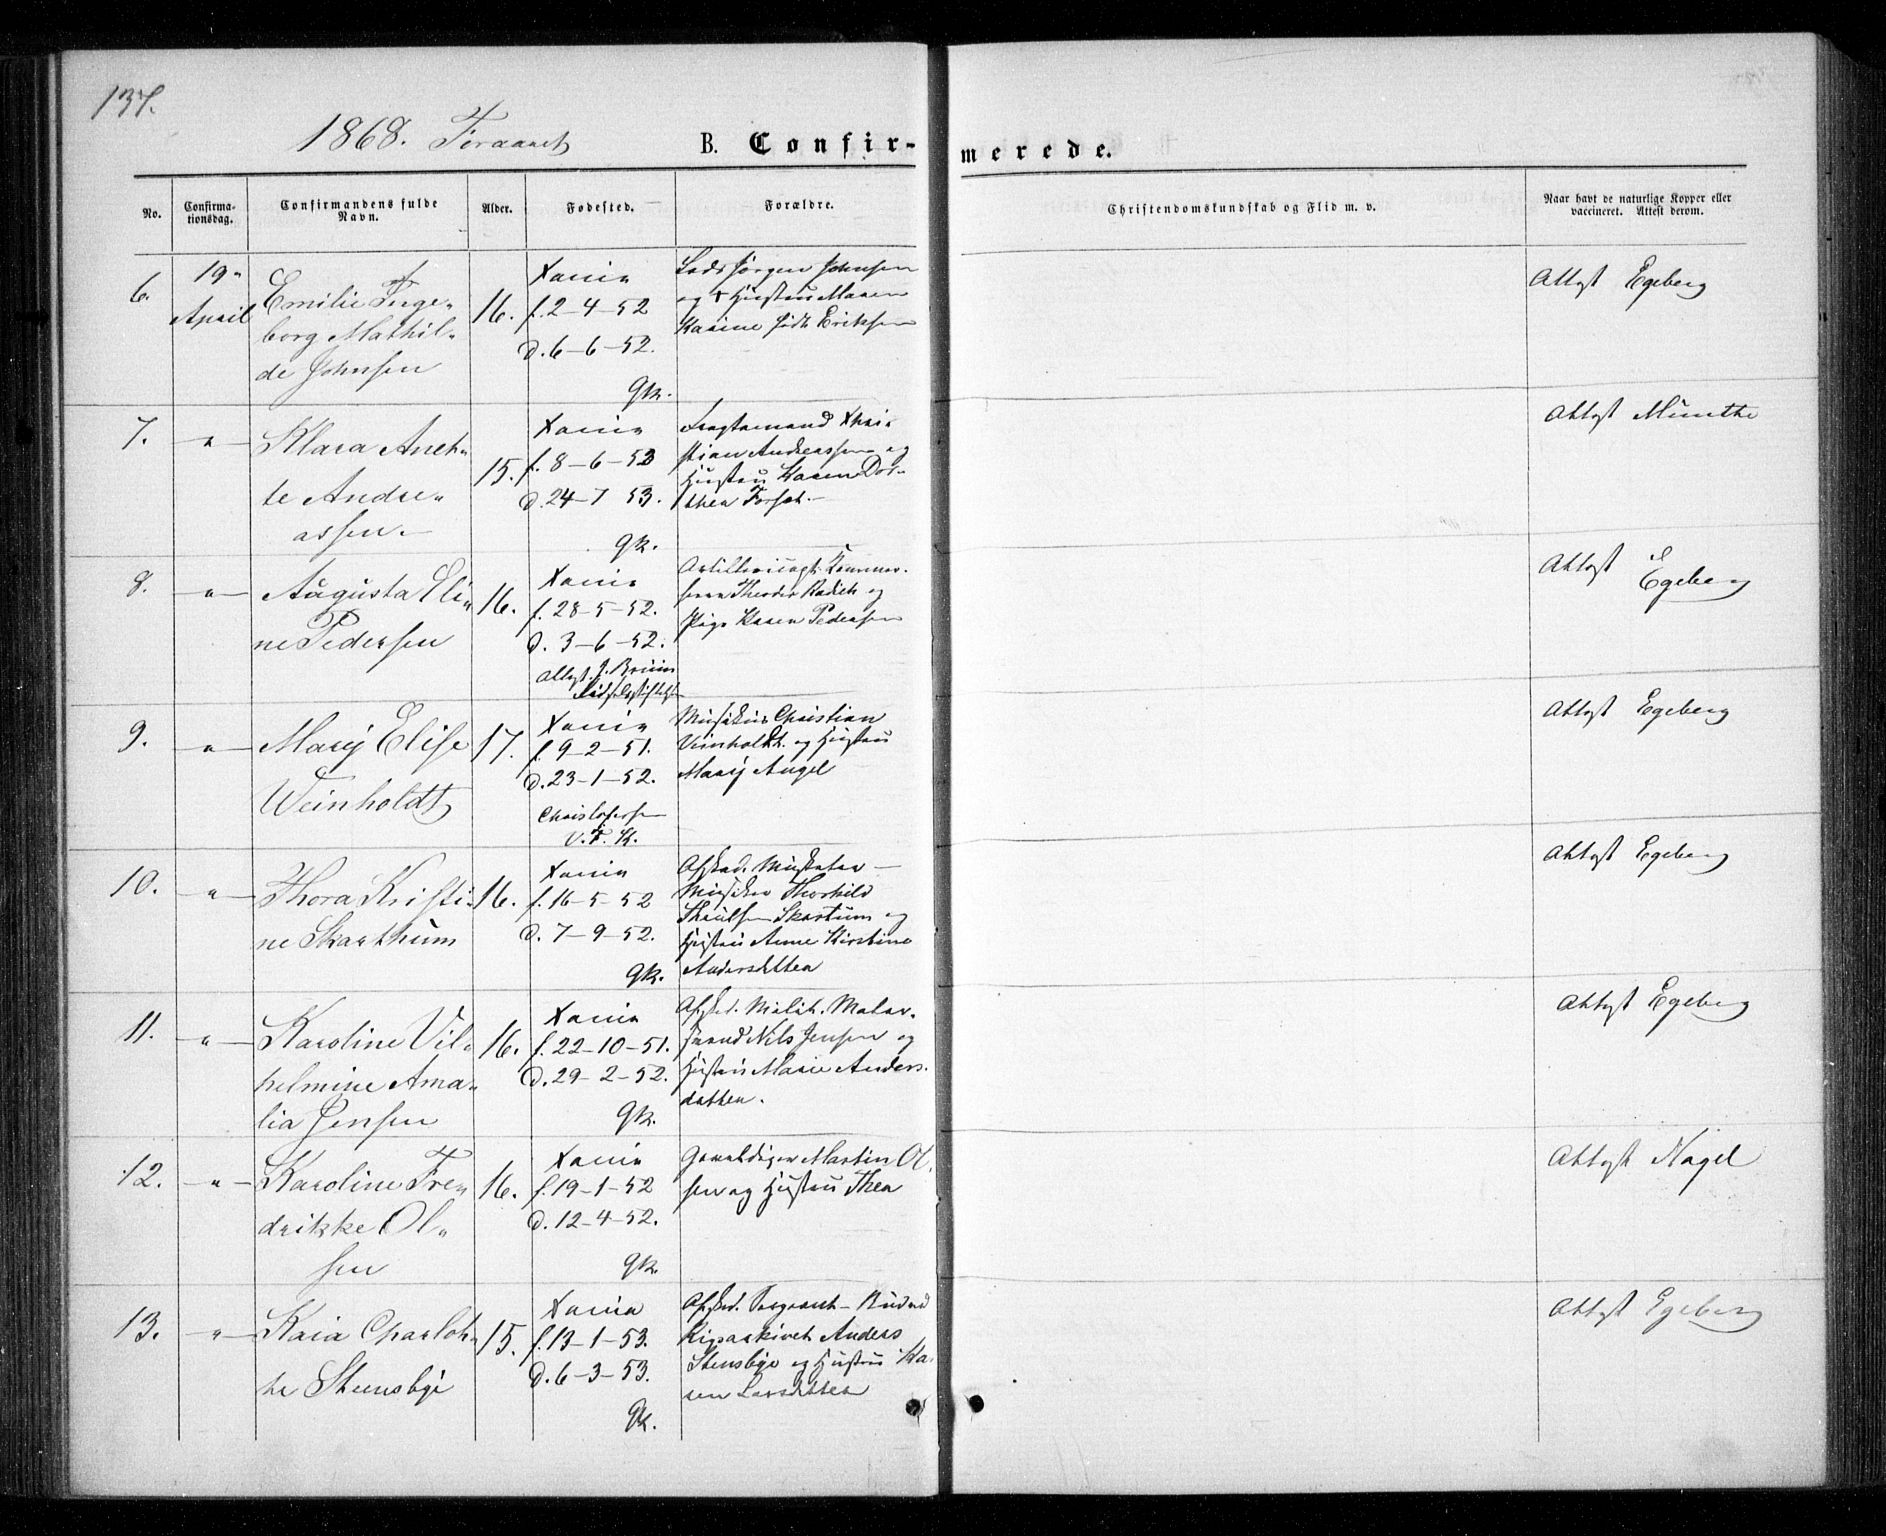 137.
1868. Foraaret
B. Confir-
merede.
No.
Confirma-
tionsdag.
Confirmandens fulde
Navn.
Alder.
Fødested.
Forældre.
Christendomskundskab og Flid m. v.
Naar havt de naturlige Kopper eller
vaccineret. Attest derom.
6.
19"
April
Emilie Inge-
borg Mathil-
de Johnsen
16.
Xania
f. 2-4-52
d. 6-6-52.
gk.
Lods Jørgen Johnsen
og Hustru Maren
Karine født Eriksen
Attest Egeberg
7.
"
Klara Anet-
te Andre-
assen.-
15.
Xania
f. 8-6-53
d. 24-7 53.
gk.
Fragtemand Khri-
stian Andreassen og
Hustru Karen Dor-
thea Forset.-
Attest Münthe
8.
"
Augusta Eli-
ne Pedersen
16.
Xania
f. 28-5-52.
d. 3-6-52.
Attest. J. Bruun
Fødselsstiftelsen
Theodor Radich og
Pige Karen Pedersen
Attest Egeberg
9.
"
Marij Elise
Weinholdt
17.
Xania
f. 9-2-51.
d. 23-1-52.
Christophersen
V. F. K.
Musikus Christian
Veinholdt. og Hustru
Marij Angel
Attest Egeberg
10.
"
Thora Kristi-
ne Skarthum
16.
Xania
f. 16-5-52
d. 7-9-52.
gk.
Afsked. Musketer-
Musiker Thorkild
Skartum og
Hustru Anne Kirstine
Andersdatter
Attest Egeberg
11.
"
Karoline Vil-
helmine Ama-
lia Jensen
16.
Xania
f. 22-10-51.
d. 29-2-52.
gk.
Afsked. Malersvend Nils Jensen og
Hustru Marie Anders-
datter.
Attest Egeberg
12.
"
Karoline Fre-
drikke Ol-
sen
16.
Xania
f. 19-1-52
d. 12-4-52.
gk.
Gevaldiger Martin Ol-
sen og Hustru Thea
Attest Nagel
13.
"
Kaia Charlot-
te Steensbye
15.
Xania
f. 13-1-53.
d. 6-3-53.
gk.
Afsked. Sergeant- Bud ved
Rigsarkivet Anders
Stensbye og Hustru Ka-
ren Larsdatter
Attest Egeberg